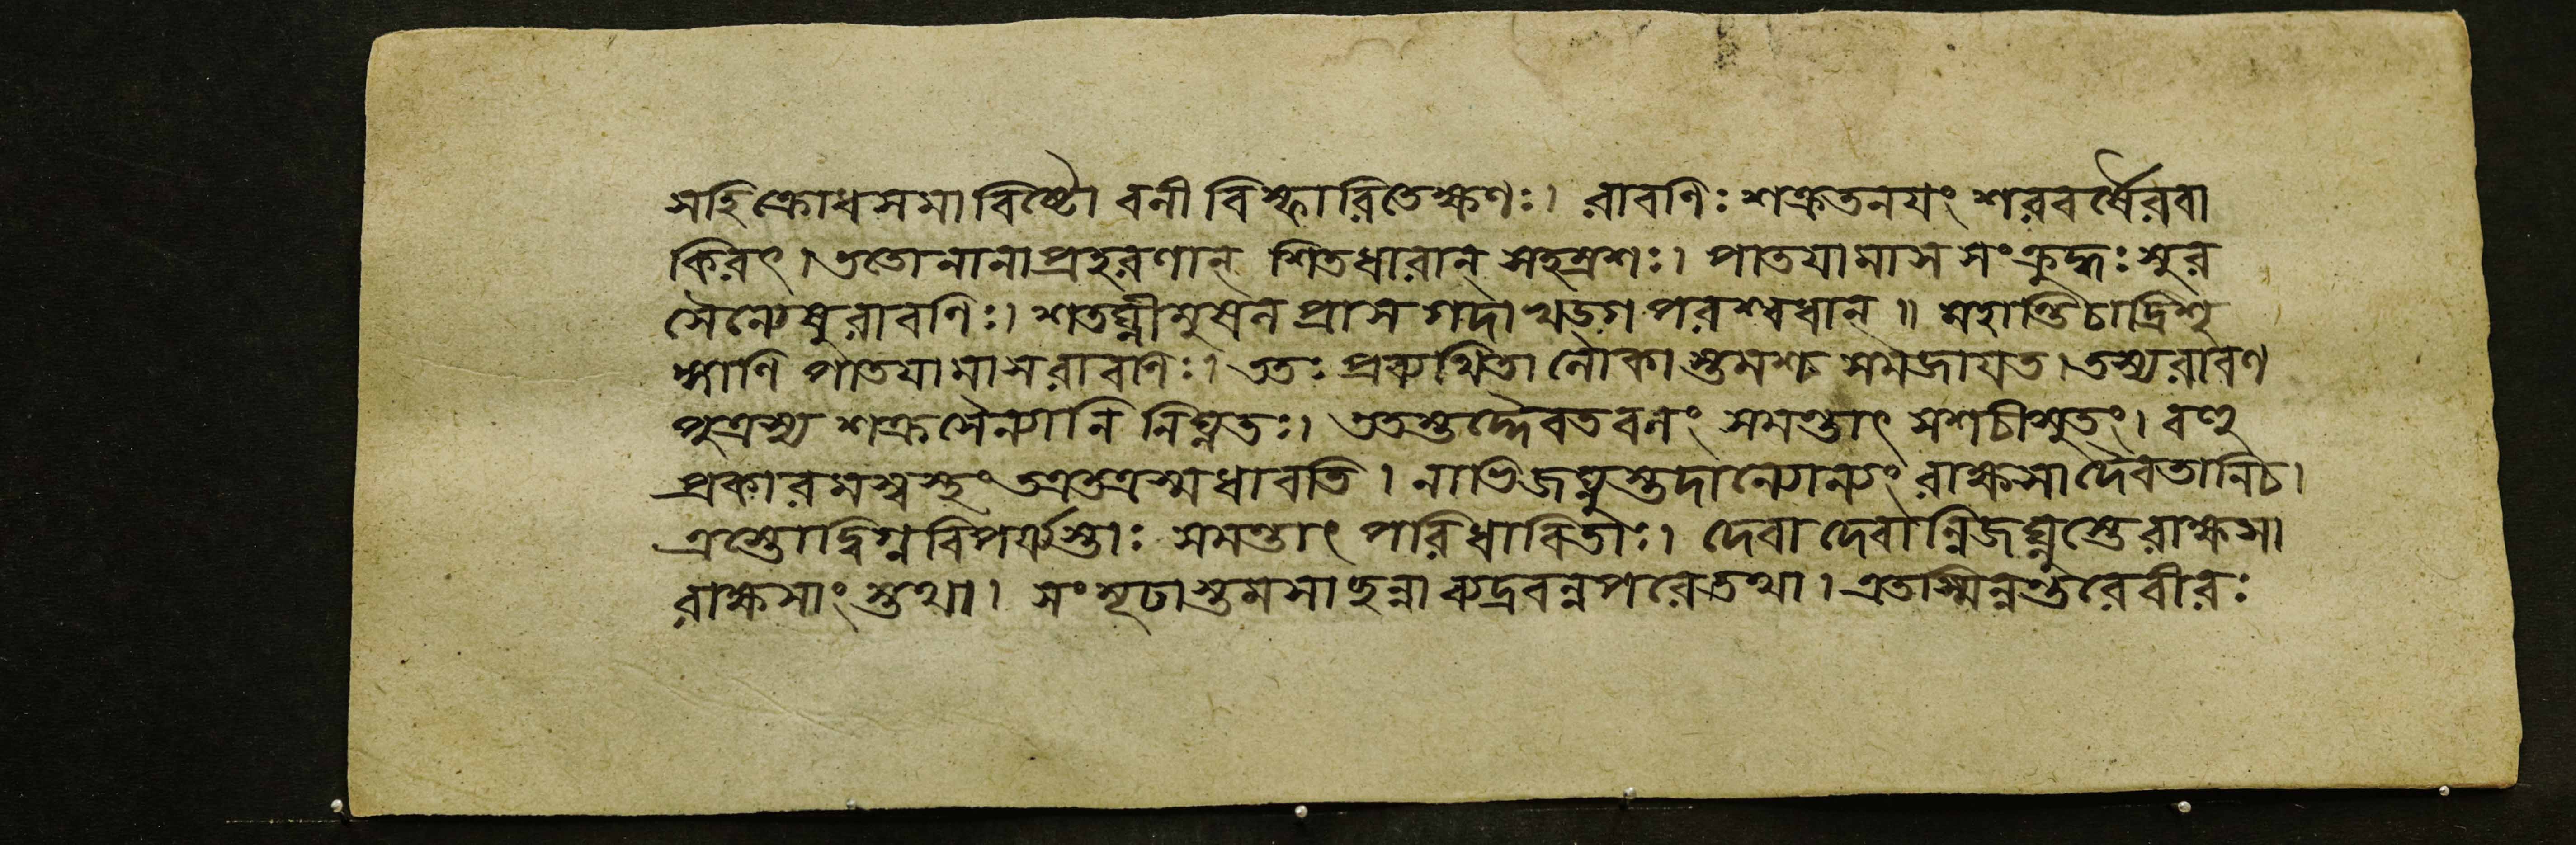 সহি ক্রোধসমাবিষ্টো বনী বিস্ফারিতেক্ষণঃ। রাবণিঃ শক্রতনয়ং শরবর্ষৈরবা
কিরৎ। ততো নানাপ্রহরণান্ শিতধারান্ সহস্রশঃ। পাতয়ামাস সংক্রুদ্ধঃ সুর
সৈন্যেষু রাবণিঃ। শতঘ্নীমুষল প্রাস গদা খড়্গ পরশ্বধান্॥ মহান্তিচাদ্রিশৃ
ঙ্গাণি পাতয়ামাস রাবণিঃ। ততঃ প্রব্যথিতা লোকাস্তমশ্চ সমজায়ত। তস্য রাবণ
পুত্রস্য শক্রসৈন্যানি নিঘ্নতঃ। ততস্তদ্দৈবতবলং সমন্তাৎ সশচীসুতং। বহু
প্রকারমস্বস্থং তত্রতত্রস্মধাবতি। নাভিজঘ্নুস্তদান্যোন্যং রাক্ষসাদৈবতানিচ।
ত্রস্তোদ্বিগ্নবিপর্য্যস্তাঃ সমন্তাৎ পরিধাবিতাঃ। দেবা দেবান্নিজঘ্নুস্তে রাক্ষসা
রাক্ষসাংস্তথা। সংমূঢাস্তমসাছন্না ব্যদ্রবন্নপরে তথা। এতস্মিন্নন্তরে বীরঃ